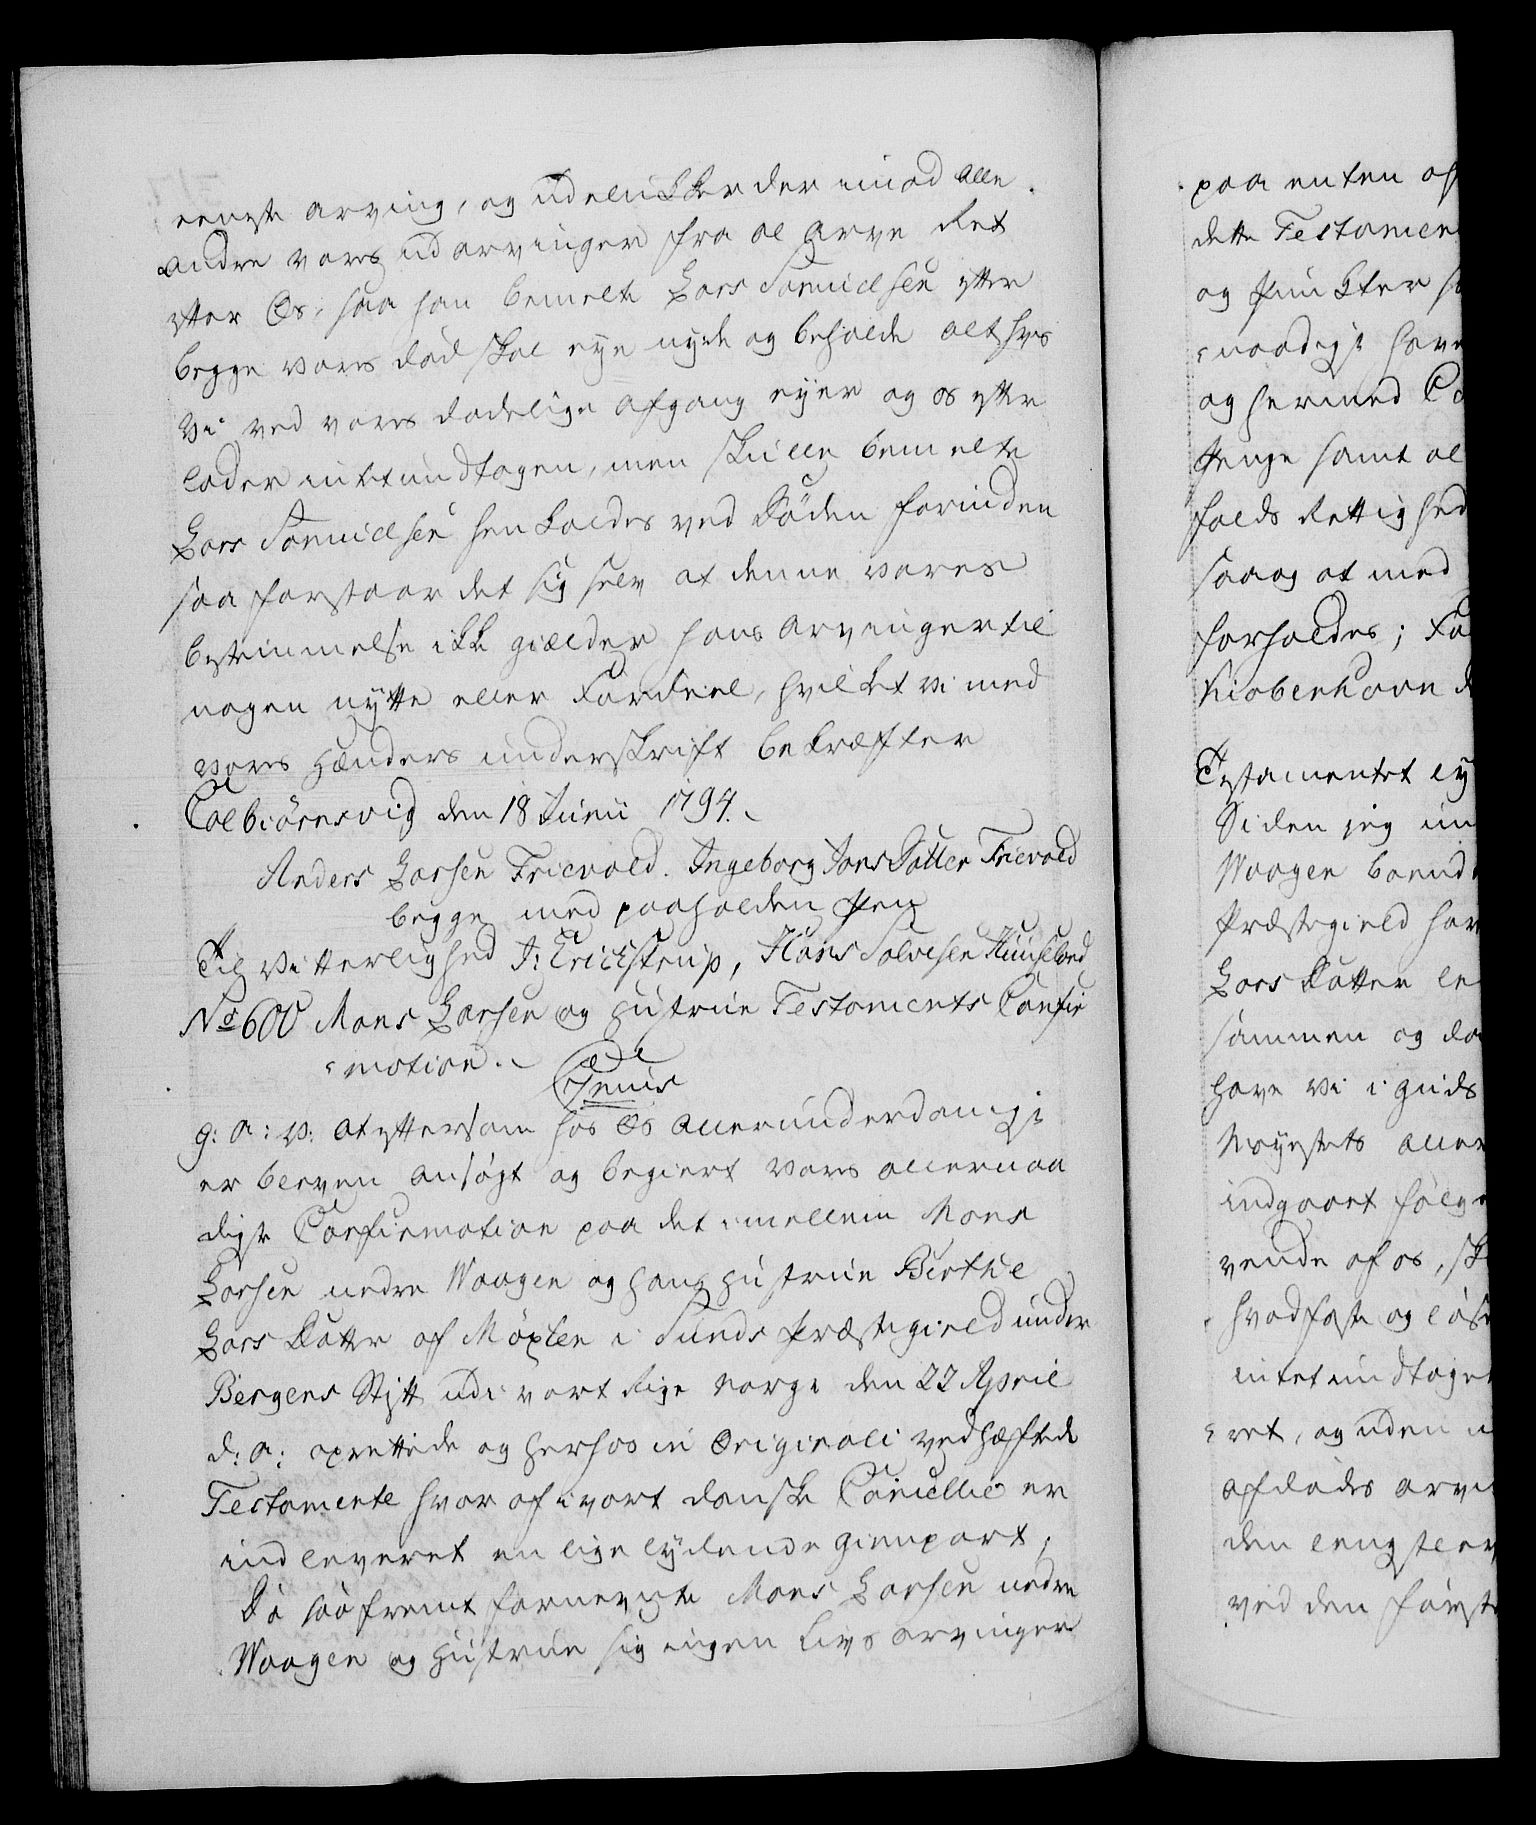 eeneste arving, og udelukker der imod alle
andre vores udarvinger fra al arve Ret
efter Os, saa han bemelte Lars Samuelsen efter
begge vores død skal eye nyde og beholde alt hves
vi ved vores dødelige afgang eyer og os efter
lader intet undtagen, men skulle bemelte
Lars Samuelsen henkaldes ved Døden forinden
saa forstaar det sig selv at denne vores
bestemmelse ikke gielder hans arvinger til
nogen nytte eller Fordeel, hvilket vi med
vores hænders underskrift bekræfter
Colbiørnsvig den 18 Junii 1794.
Anders Larsen Trievold. Ingeborg Jans Datter Trievold
begge med paaholden Pen
Til Vitterlighed J. Erichstrup, Hans Salvesen
No 600 Mons Larsen og Hustrue Testaments Confir
mation.
Tenis
g: a: v: at eftersom hos Os allerunderdanigst
er bleven ansøgt og begiert vores allernaa
digste Confirmation paa det imellem Mons
Larsen nedre Waagen og hans hustrue Birthe
Lars Datter af Møxlen i Sunds Præstegield under
Bergens Stift udi vort Rige Norge den 22 April
d: a: oprettede og herhos in Originali vedhæftede
Testamente hvor af i vort danske Cancellie er
indleveret en lige lydende Gienpart;
Da saafremt fornevnte Mons Larsen nedre
Waagen og Hustrue sig ingen Livs arvinger
paa enten af
dette Testamen
og Puncter s
naadigst have
og hermed Co
Penge samt al
falds Rettighed
saa og at med
forholdes; Fo
Kiøbenhavn d
Testamentet ly
Siden jeg un
Waagen boend
Præstegield har
Lars Datter le
sammen og da
have vi i Guds
Mayestets aller
indgaaet følge
vende af os, sk
hvad faste og løse
intet undtaget
ret, og uden
afdødes arvi
den lengstlev
ved den første